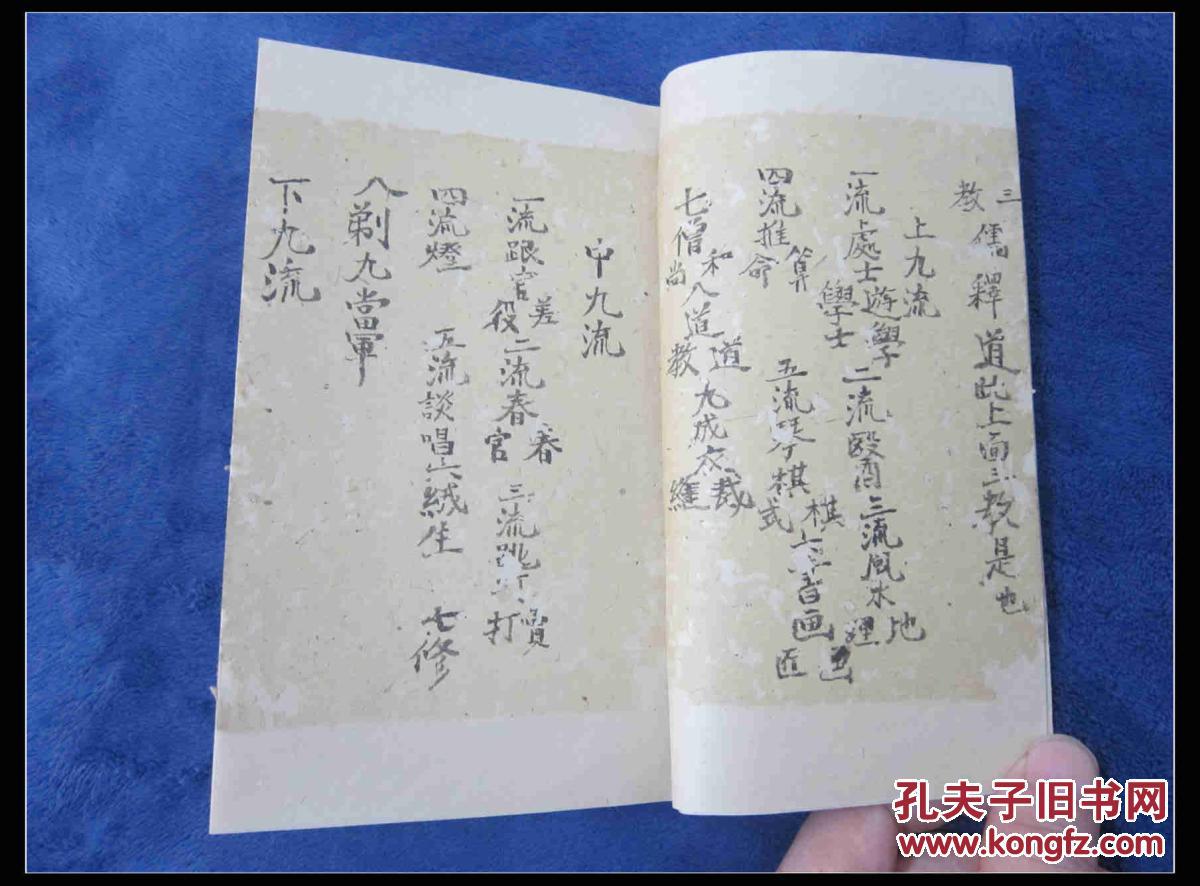 三教儒釋道此上面三教是也
上九流
一流處士遊學學士二流醫三流風水地理
四流推算命五流琴棋棋式六音画画匠
七僧和尚八道道教九成衣裁縫
中九流
一流跟官差役二流春春官三流跳賣打
四流燈五流談唱六絨生七修
八剃九當軍
下九流
孔夫子旧书网
www.kongfz.com